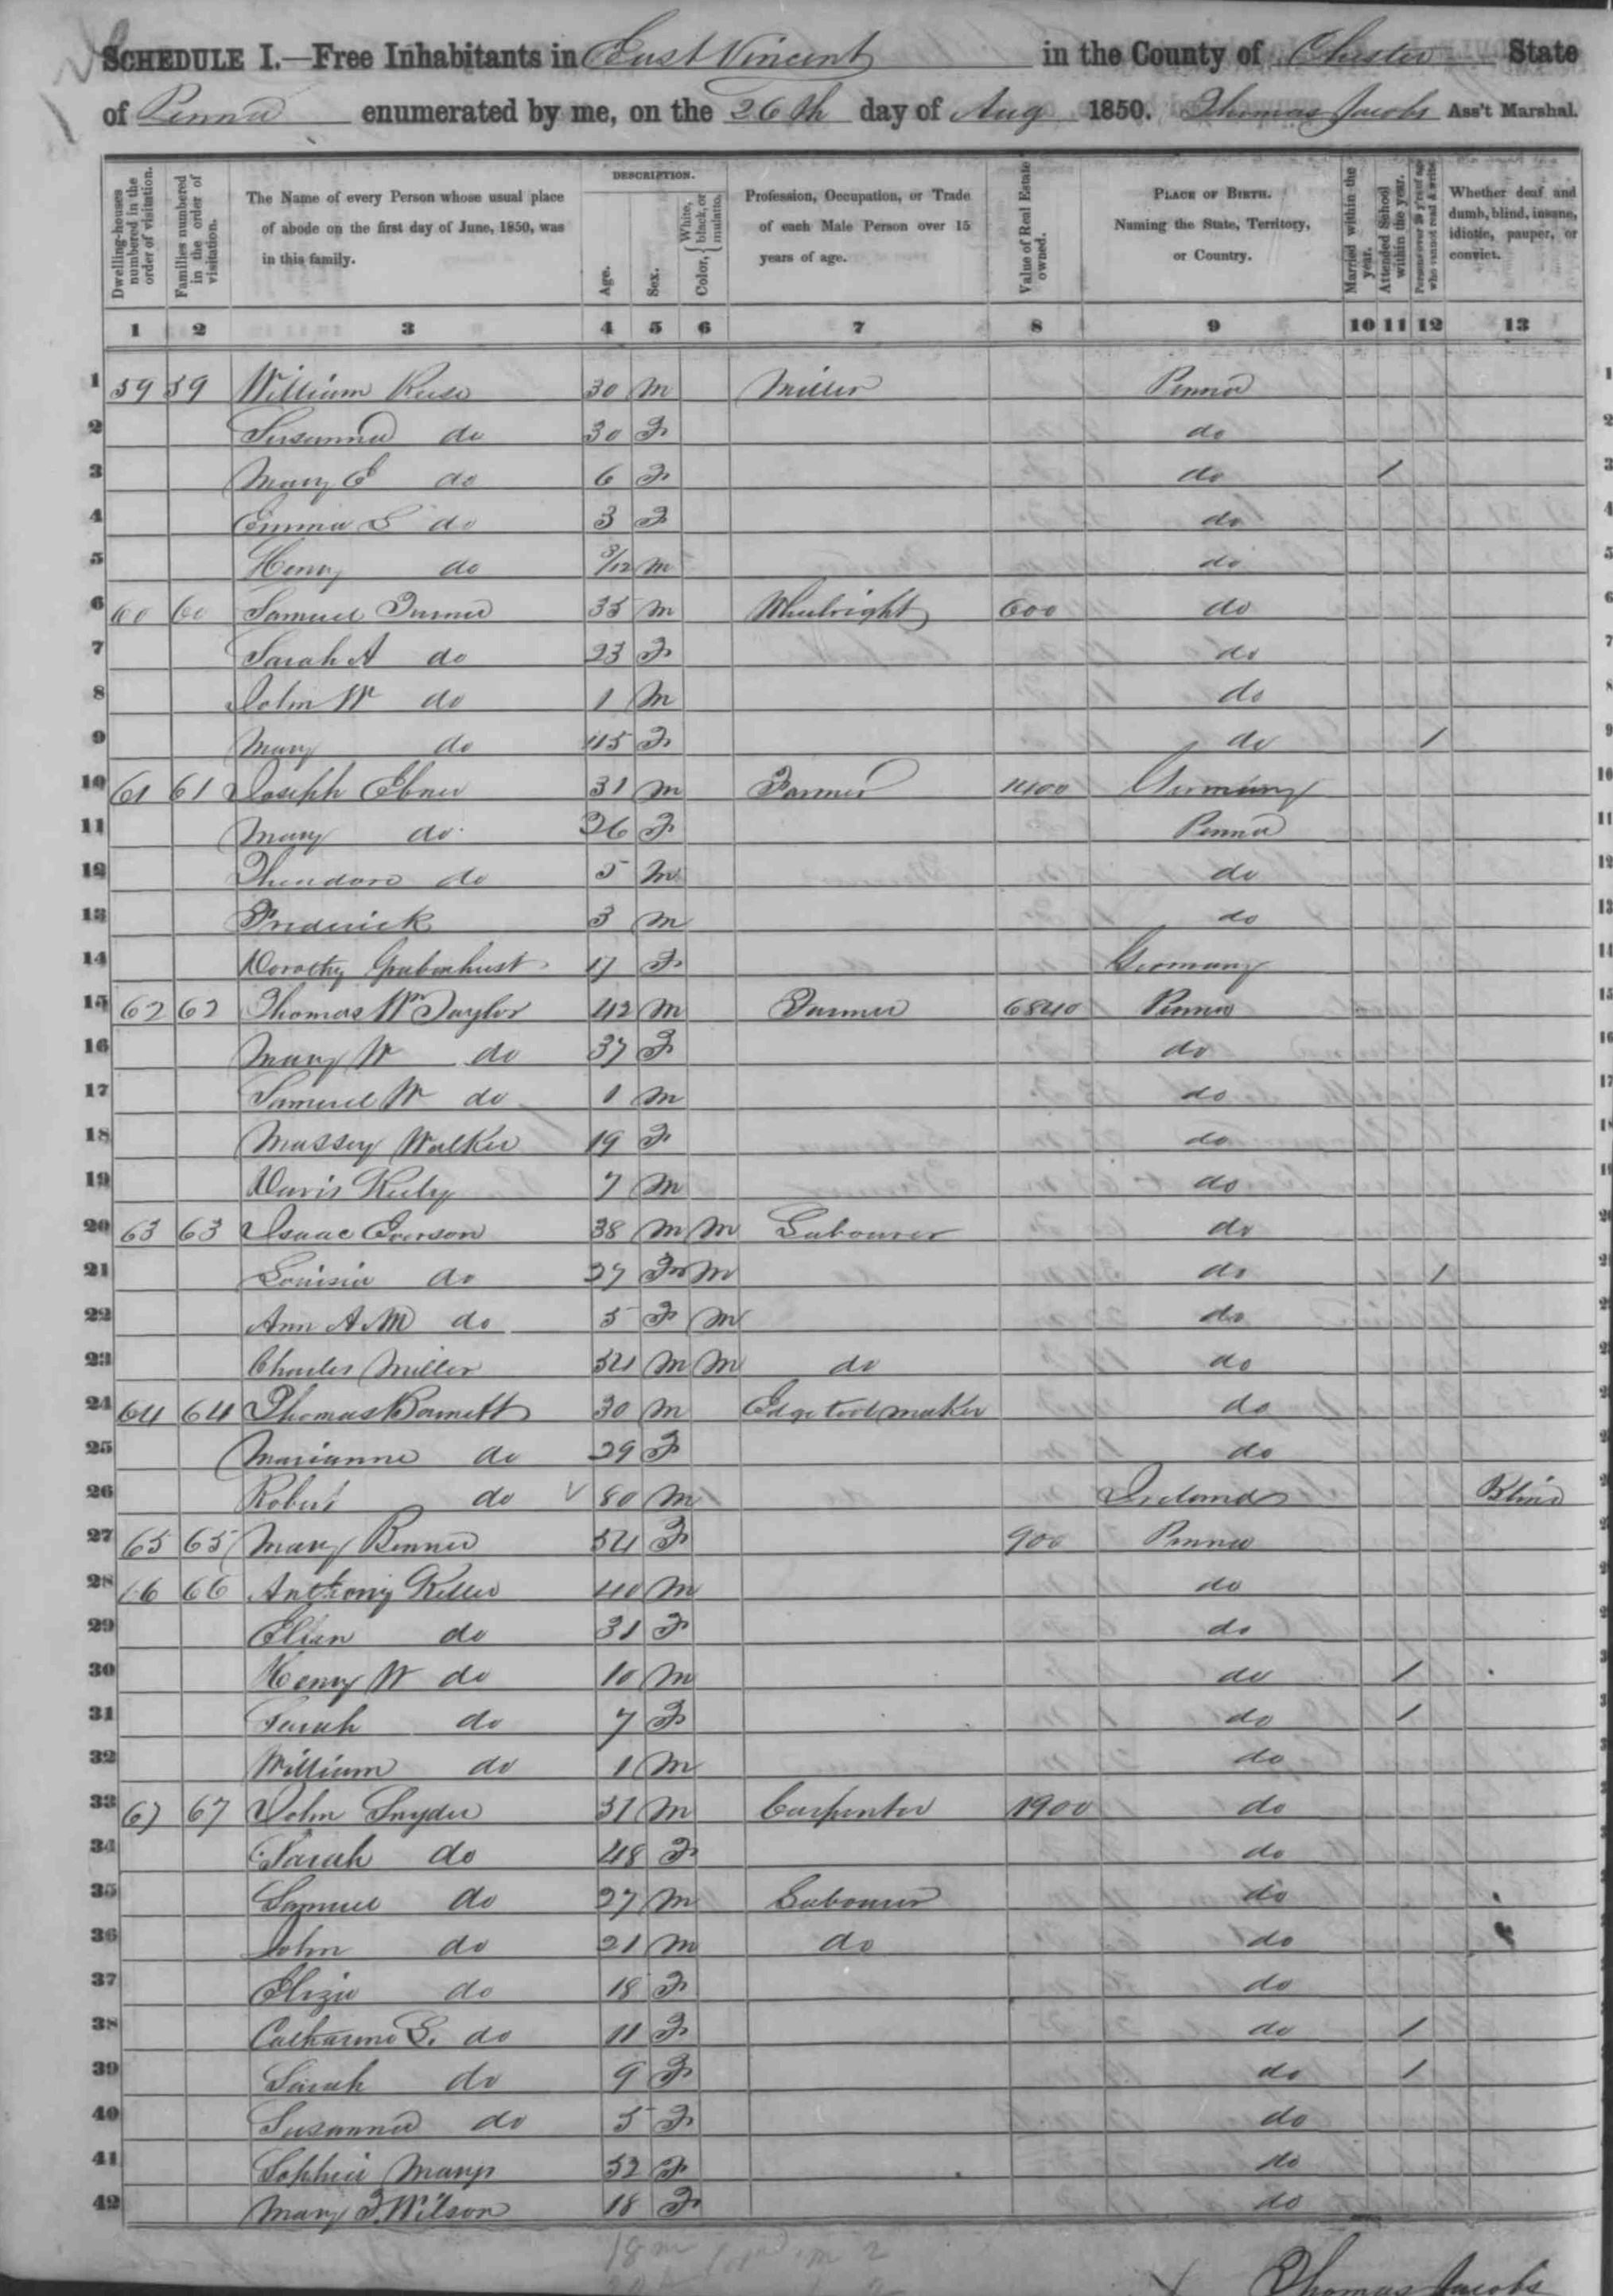 SCHEDULE I.—Free Inhabitants in East Vincent in the County of Chester State
of Penna enumerated by me, on the 26th day of Aug 1850. Thomas Jacobs Ass't Marshal.
Dwelling-houses numbered in the order of visitation.
Families numbered in the order of visitation.
The Name of every Person whose usual place of abode on the first day of June, 1850, was in this family.
DESCRIPTION.
Age.
Sex.
Color, { White, black, or mulatto.
Profession, Occupation, or Trade of each Male Person over 15 years of age.
Value of Real Estate owned.
PLACE OF BIRTH. Naming the State, Territory, or Country.
Married within the year.
Attended School within the year.
Persons over 20 y'rs of age who cannot read & write
Whether deaf and dumb, blind, insane, idiotic, pauper, or convict.
1 2 3 4 5 6 7 8 9 10 11 12 13
1 59 59 William Reese 30 m Miller Penna 1
2 Susanna do 30 F do 2
3 Mary E do 6 F do / 3
4 Emma S do 3 F do 4
5 Henry do 3/12 m do 5
6 60 60 Samuel 35 m Wheelright 600 do 6
7 Sarah A do 23 F do 7
8 John W do 1 m do 8
9 Mary do 45 F do / 9
10 61 61 Joseph Ebner 31 m Farmer 1400 Germany 10
11 Mary do 26 F Penna 11
12 Theodore do 5 m do 12
13 Frederick 3 m do 13
14 Dorothy 17 F Germany 14
15 62 62 Thomas W Taylor 42 m Farmer 6840 Penna 15
16 Mary W do 37 F do 16
17 Samuel W do 1 m do 17
18 Massey Walker 19 F do 18
19 Davis Keely 7 m do 19
20 63 63 Isaac Everson 38 m m Labourer do 20
21 Louisia do 27 F m do / 2
22 Ann A. M do 5 F m do 2
23 Charles Miller 54 m m do do 2
24 64 64 Thomas Barnett 30 m Edge tool maker do 2
25 Marianne do 29 F do 2
26 Robert do 80 m Ireland Blind 2
27 65 65 Mary Benner 54 F 900 Penna 2
28 66 66 Anthony Keller 40 m do 2
29 do 31 F do 2
30 Henry W do 10 m do / 3
31 Sarah do 7 F do / 3
32 William do 1 m do 3
33 67 67 John Snyder 51 m Carpenter 1900 do
34 Sarah do 48 F do
35 Samuel do 27 m Labourer do
36 John do 21 m do do
37 Eliza do 18 F do
38 Catharine S. do 11 F do /
39 Sarah do 9 F do /
40 Susanna do 5 F do
41 Sophia 52 F do
42 Mary F. Wilson 18 F do
18 m
Thomas Jacobs